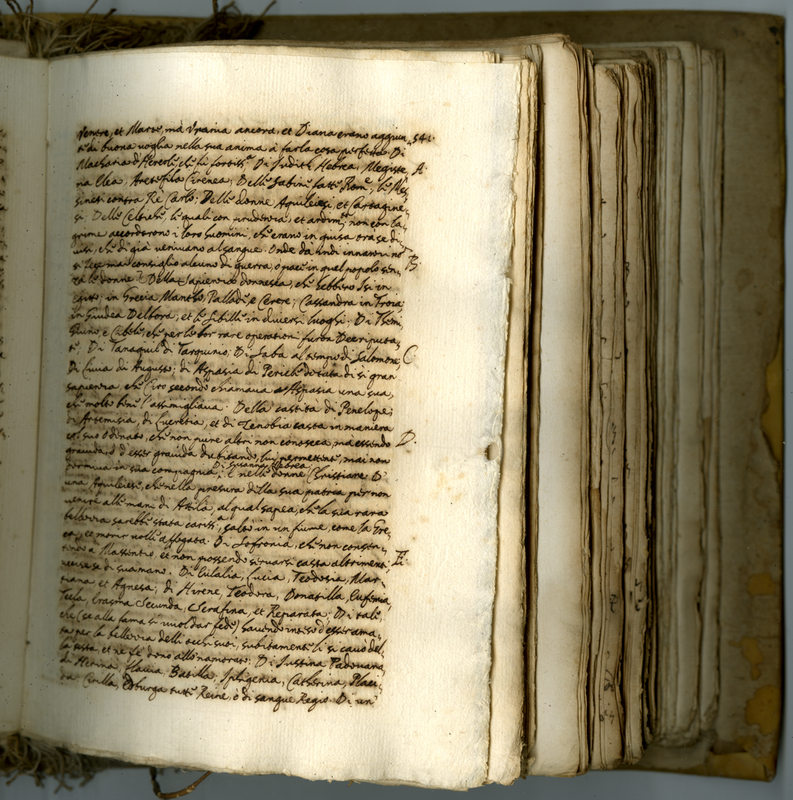 Venere, et Marte, mà Urania ancora, et Diana erano aggiun 541.
te di buona voglia nella sua anima à farla cosa perfetta. Di
Macharia d'Hercole, che fù fortiss.ª Di Judith Hebrea, Megiste, A.
na Elea, Aretofila Cirenea; Delle Sabine fatte Romᵉ, le Mes
sinesi contra Re Carlo; Delle donne Aquileiesi, et Cartagine,
si; Delle Celtiche, le quali con prudenza, et ardimᵗᵒ, non con la,
grime accordorono i loro huomini, ch'erano in guisa ora se di
uisi, che di già venivano al sangue. Onde da indi innanzi nō
si fece mai consiglio alcuno di guerra, ò pace in quel popolo sen, B.
za le donne. Della Sapienza donnesca, ch' hebbero Isi in
Egitto; in Grecia Mantho, Pallade, e Cerere; Cassandra in Troia;
in Giudea Delbora; et le Sibille in diversi luoghi. Di Themi,
e Cibele, che per le lor rare operationi furon Dee riputa,
te; Di Tanaquil di Tarquino; Di Saba al tempo di Salomone, C.
Di Livia di Augusto; di Aspasia di Pericle dotata di si gran
sapienza, che Ciro secondo chiamava Aspasia una sua,
che molto bene l'assimigliava. Della castità di Penelope;
di Artemisia, di Lucretia, et di Zenobia casta in maniera
col suo Odinato, che non pure altri non conosceva, mà essendo D.
gravida, ò d'esser gravida dubitando, lui permetteva, mai non
dormiva in sua compagnia; Di Susanna Hebrea. E nelle donne Christiane Di
una Aquileiese, che nella presura della sua patria per non
venire alle mani di Attila, al qual sapea, che la sua rara
bellezza sarebbe stata cariss.ª saltò in un fiume, come la Gre,
ca, et ce morir volle affogata. Di Sofronia, che non consen,
tendo à Massentio, et non possendo servarsi casta altrimenti, E.
uccise se di sua mano. Di Eulalia, Lucia, Teodosia, Mar,
tiana, et Agnesa; di Hirene, Teodora, Donatilla, Eufemia,
Tecla, Erasma, Secunda, Serafina, et Reparata. Di tale,
che (se alla fama si vuol dar fede) havendo inteso d'esser ama,
ta per la bellezza delli occhi suoi, subitamente li si cavò del,
la testa, et ne fè dono all'innamorato; Di Iustina Padovana,
di Herina, Flavia, Batilla, Iphigenia, Catherina, Placi,
da, Cirilla, Edburga tutte Reine, ò di sangue Regio. Di un'